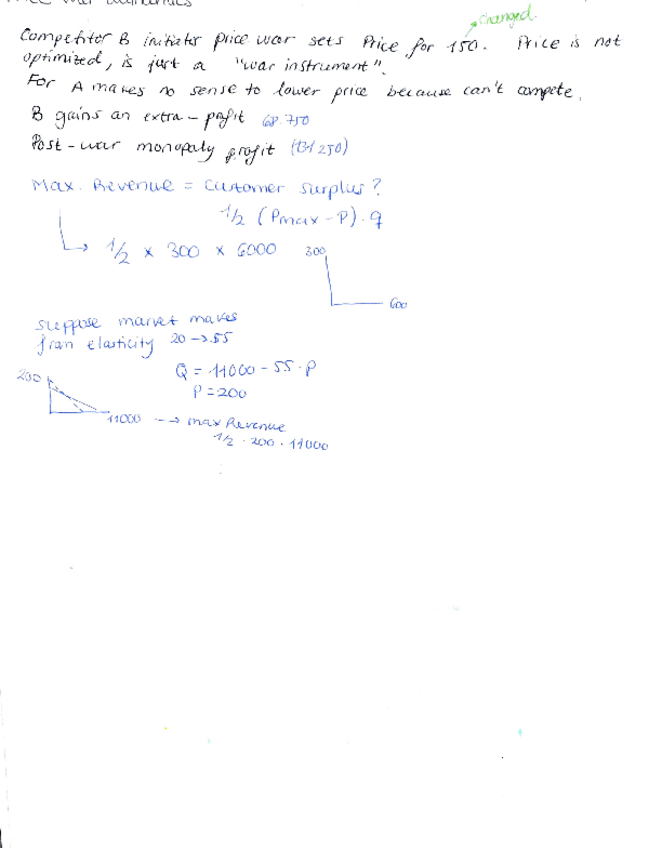 changed.
Competitor B initiates price war sets Price for 150. Price is not
optimized, is just a "war instrument".
For A makes no sense to lower price because can't compete.
B gains an extra-profit 68.750
Post-war monopoly profit (131250)
Max. Revenue = Customer surplus?
1/2 (Pmax - P) · q
1/2 × 300 × 6000
300
600
suppose market makes
from elasticity 20 -> 55
Q = 11000 - 55 · P
P = 200
200
11000 -> max Revenue
1/2 · 200 · 11000